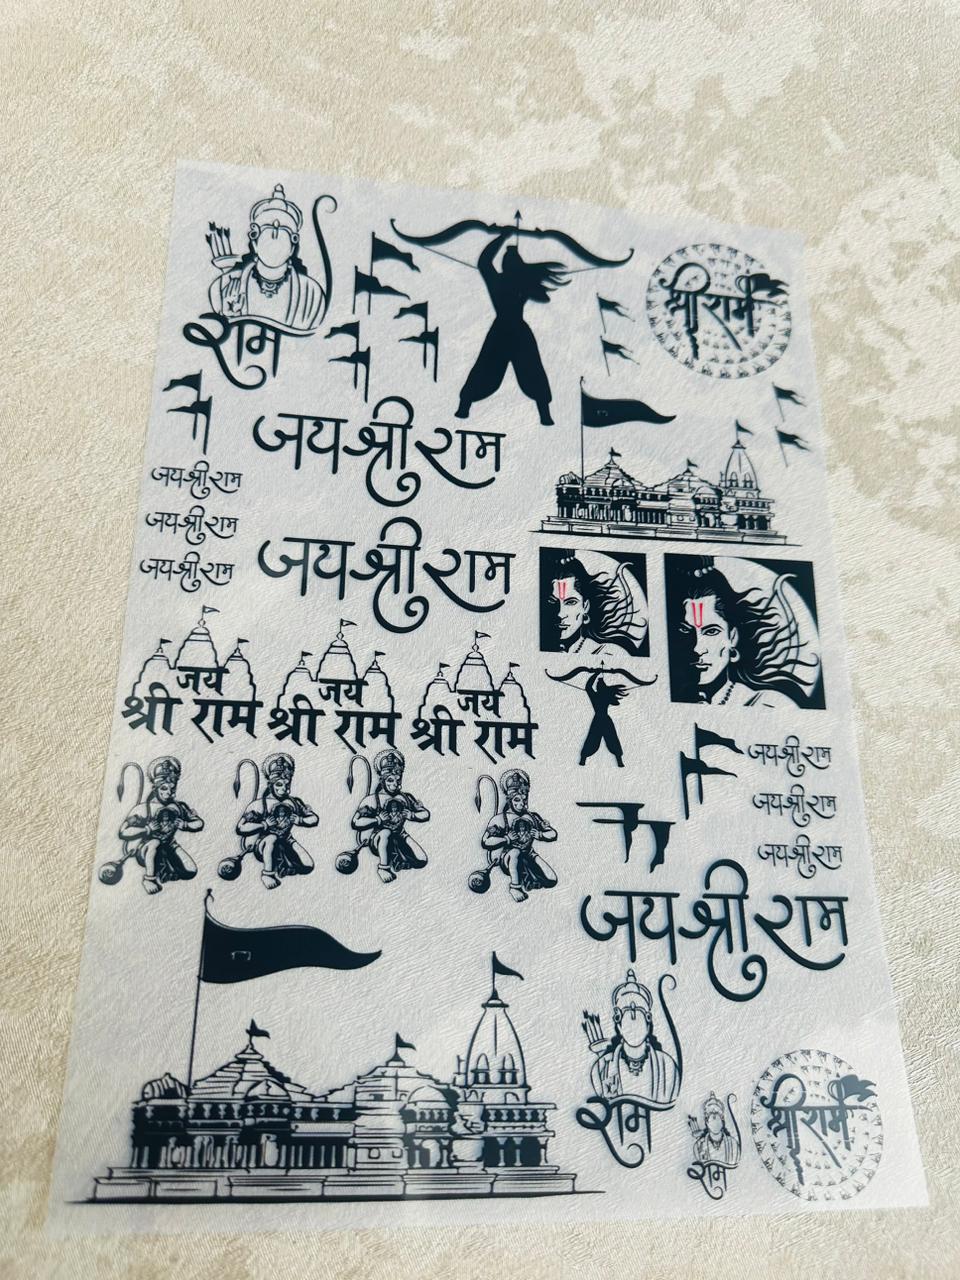 राम
श्री राम
जय श्री राम
जय श्री राम
जय श्री राम
जय श्री राम
जय श्री राम
जय
श्री राम
जय
श्री राम
जय
श्री राम
जय श्री राम
जय श्री राम
जय श्री राम
जय श्री राम
राम
राम
श्री राम